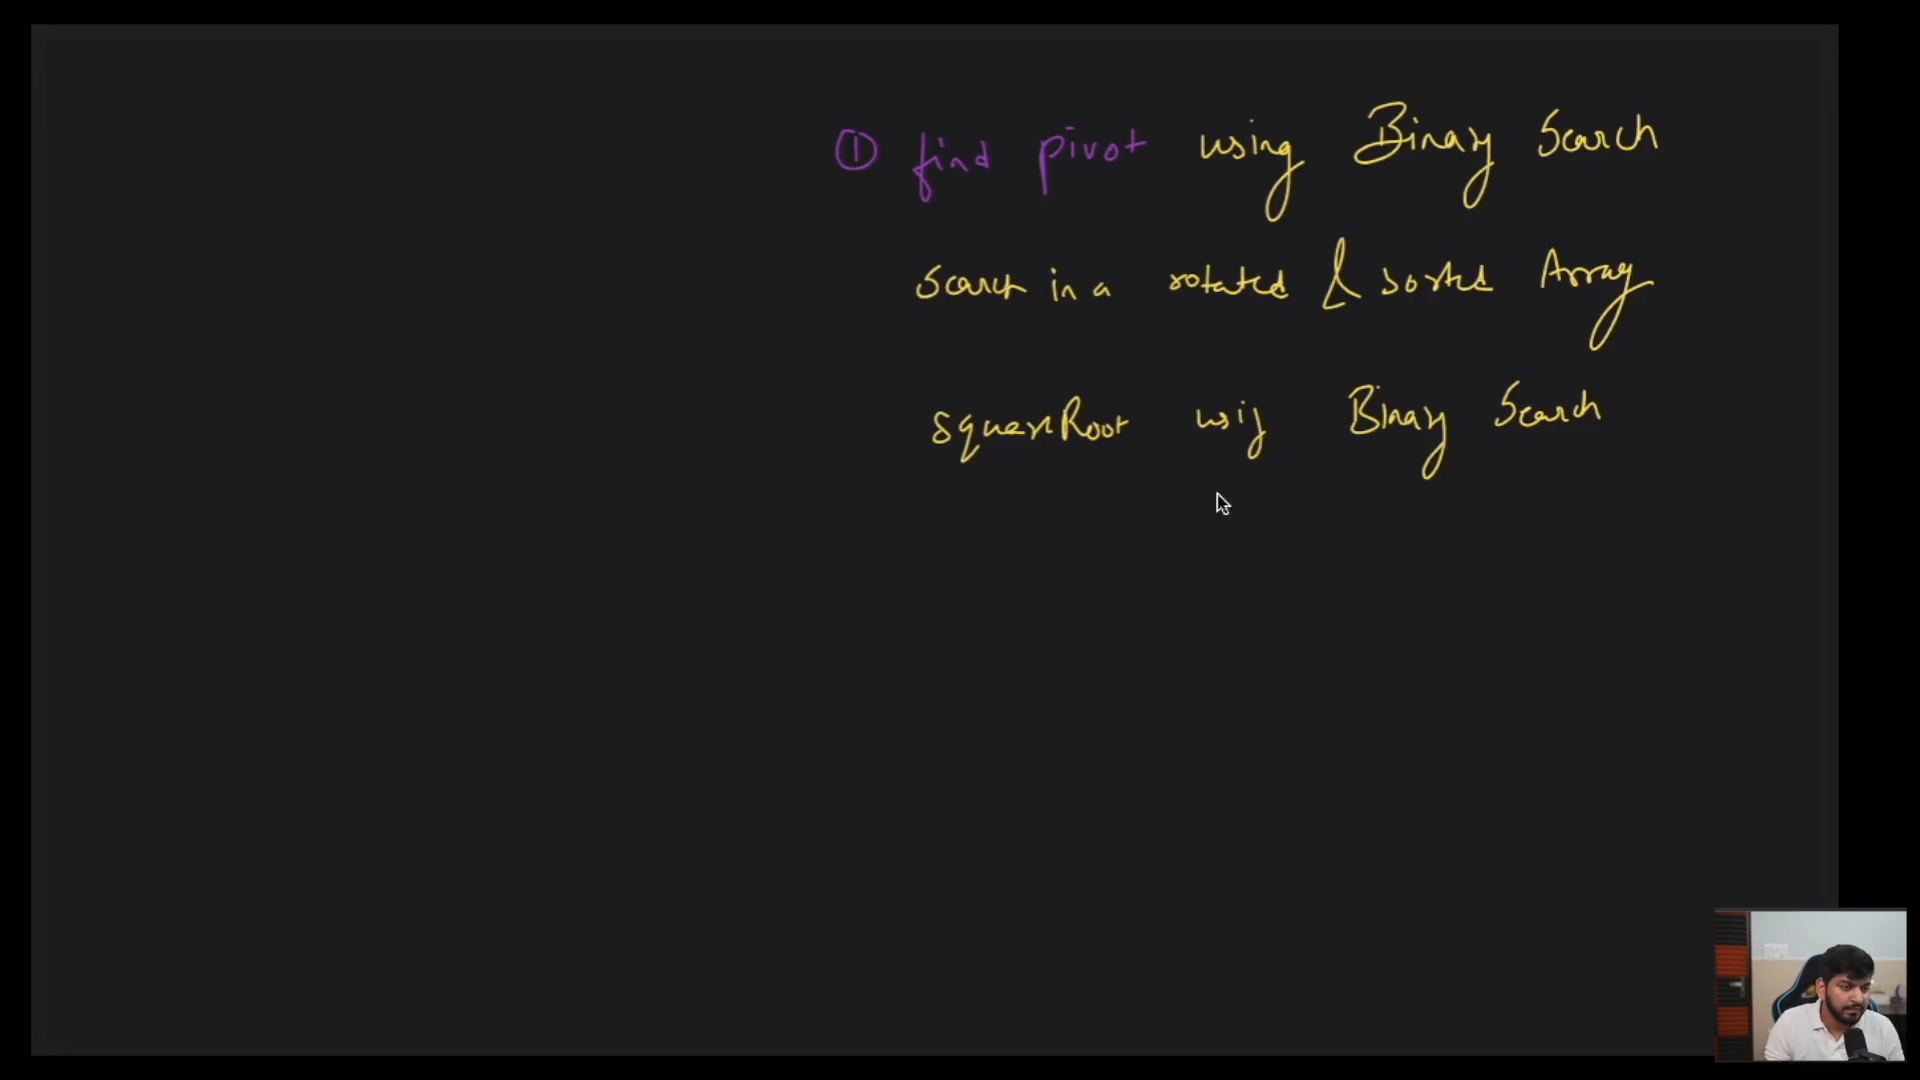 ① find pivot using Binary Search
Search in a rotated & sorted Array
squareRoot usig Binary Search